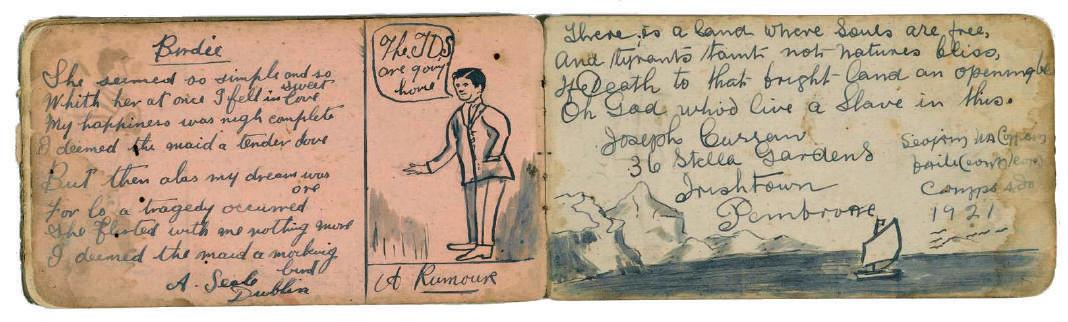 Birdie
She seemed so simple and so
sweet
Whith her at once I fell in love
My happiness was nigh complete
I deemed the maid a tender dove
But then alas my dream was
ore
For lo a tragedy occurred
She flirted with me nothing more
I deemed the maid a mocking
bird
A. Seale
Dublin
The TDS
are goin
home
A Rumour
There is a land where Souls are free,
And tyrants taint not natures bliss,
If Death to that bright land an opening be
Oh God who'd live a Slave in this.
Joseph Curran
36 Stella Gardens
Irishtown
Pembroke
Coy
Camp
1921